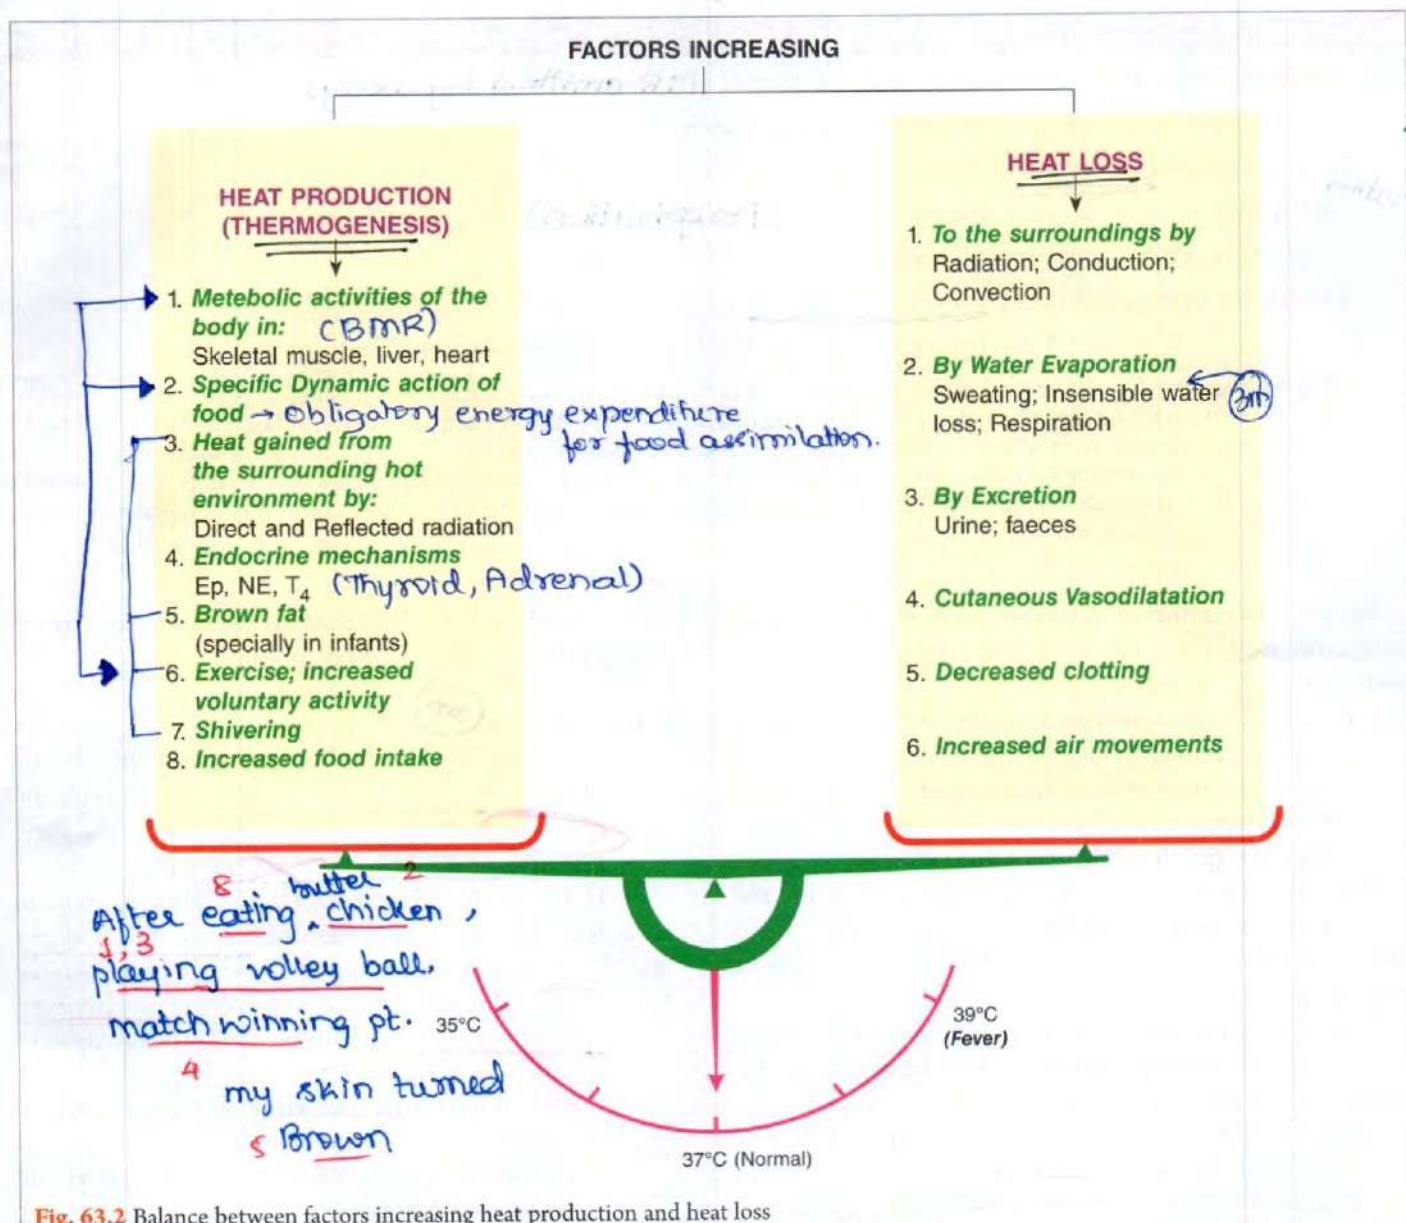 FACTORS INCREASING
HEAT PRODUCTION
(THERMOGENESIS)
1. Metebolic activities of the
body in: (BMR)
Skeletal muscle, liver, heart
2. Specific Dynamic action of
food → Obligatory energy expenditure
for food assimilation.
3. Heat gained from
the surrounding hot
environment by:
Direct and Reflected radiation
4. Endocrine mechanisms
Ep, NE, T4 (Thyroid, Adrenal)
5. Brown fat
(specially in infants)
6. Exercise; increased
voluntary activity
7. Shivering
8. Increased food intake
HEAT LOSS
1. To the surroundings by
Radiation; Conduction;
Convection
2. By Water Evaporation
Sweating; Insensible water
loss; Respiration
3. By Excretion
Urine; faeces
4. Cutaneous Vasodilatation
5. Decreased clotting
6. Increased air movements
8 butter 2
After eating chicken,
1, 3
playing volley ball,
match winning pt.
4
my skin turned
5 Brown
35°C
39°C
(Fever)
37°C (Normal)
Fig. 63.2 Balance between factors increasing heat production and heat loss